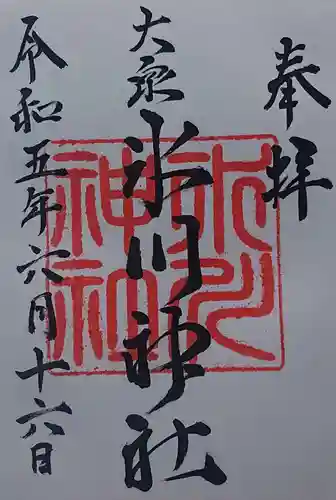 奉拝
大泉
氷川神社
令和五年六月十六日
氷川
神社